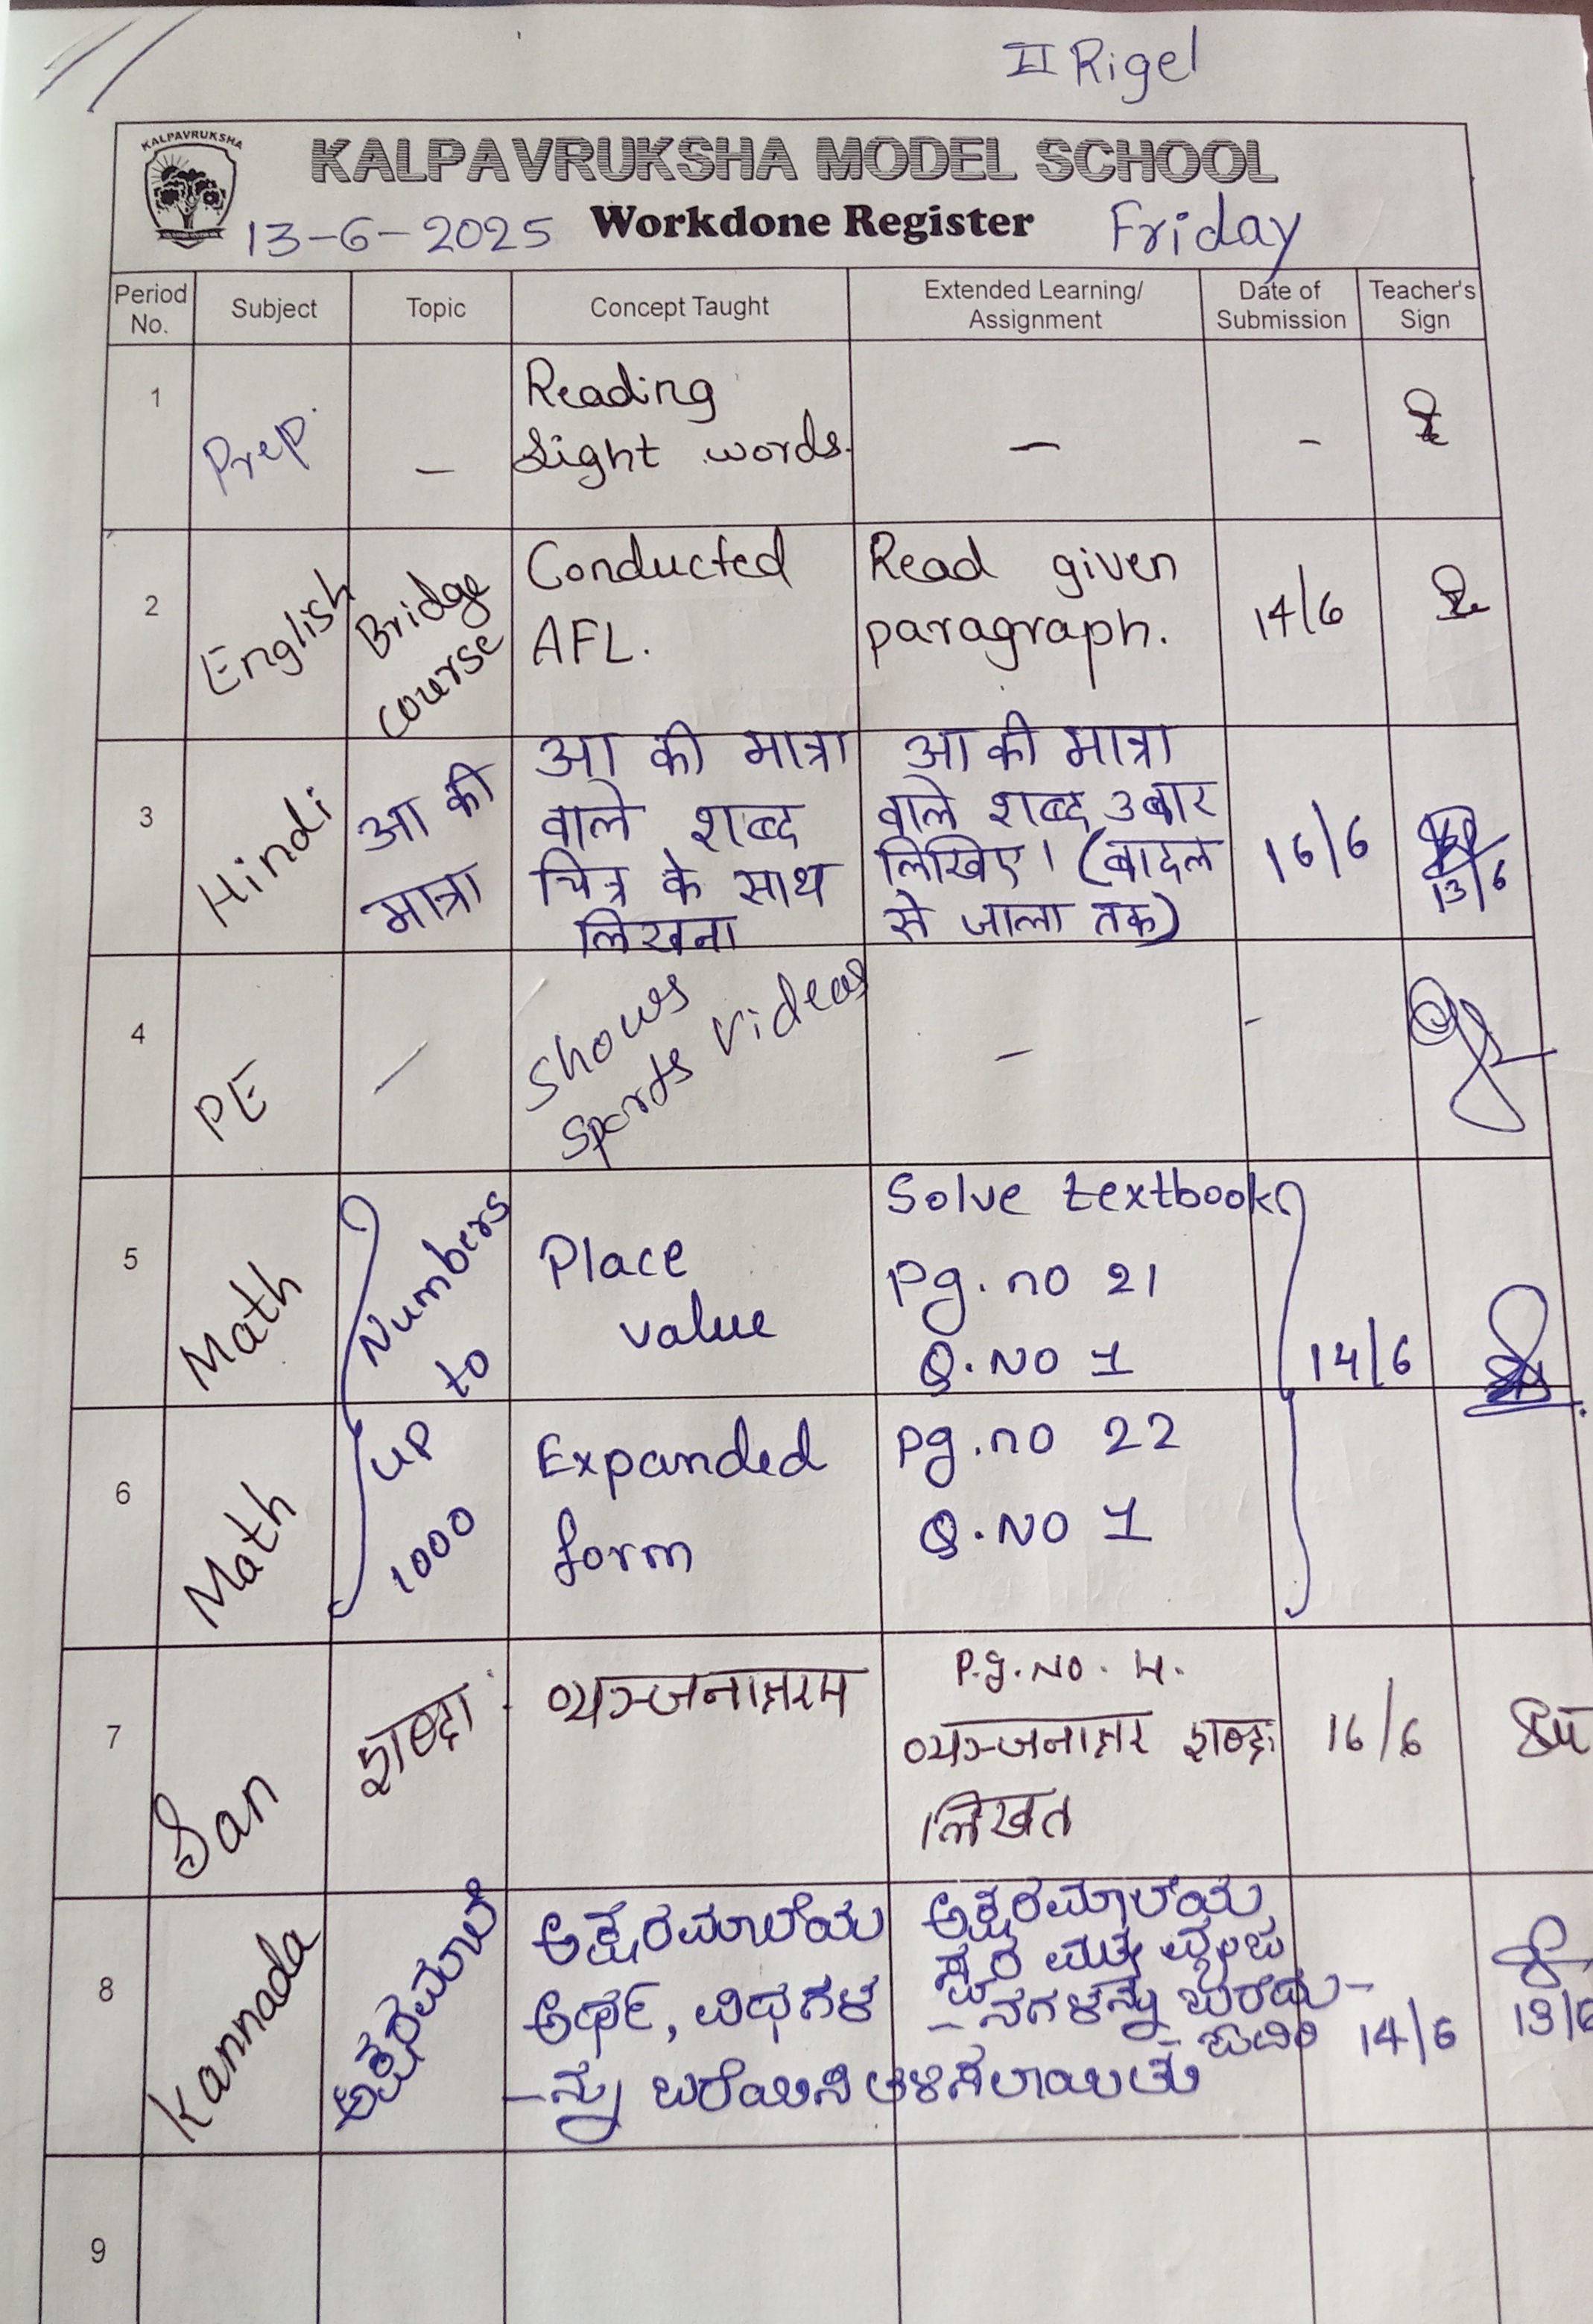 II Rigel
KALPAVRUKSHA
KALPAVRUKSHA MODEL SCHOOL
13-6-2025 Workdone Register Friday
Period No. Subject Topic Concept Taught Extended Learning/ Assignment Date of Submission Teacher's Sign
1 Prep. - Reading - -
Sight words.
2 English Bridge Conducted Read given 14/6
course AFL. paragraph.
3 Hindi आ की आ की मात्रा आ की मात्रा 16/6
मात्रा वाले शब्द वाले शब्द 3 बार
चित्र के साथ लिखिए। (बादल
लिखना से जाला तक)
13/6
4 PE - Shows - -
Sports Videos
5 Math Numbers Place Solve textbook
to value Pg. no 21
Q. No 1 14/6
6 Math up Expanded pg. no 22
1000 form Q. No 1
7 San शब्दाः व्यञ्जनाक्षरम P.g. No. 4. 16/6
व्यञ्जनाक्षर शब्दाः
लिखत
8 Kannada ಅಕ್ಷರಮಾಲೆ ಅಕ್ಷರಮಾಲೆಯ ಅಕ್ಷರಮಾಲೆಯ
ಅರ್ಥ, ವಿಧಗಳ ಸ್ವರ ಮತ್ತು ವ್ಯಂಜ
-ನಗಳನ್ನು ಬರೆದು-
14/6 13/6
-ನ್ನು ಬರೆಯಿಸಿ ತಿಳಿಸಲಾಯಿತು
9